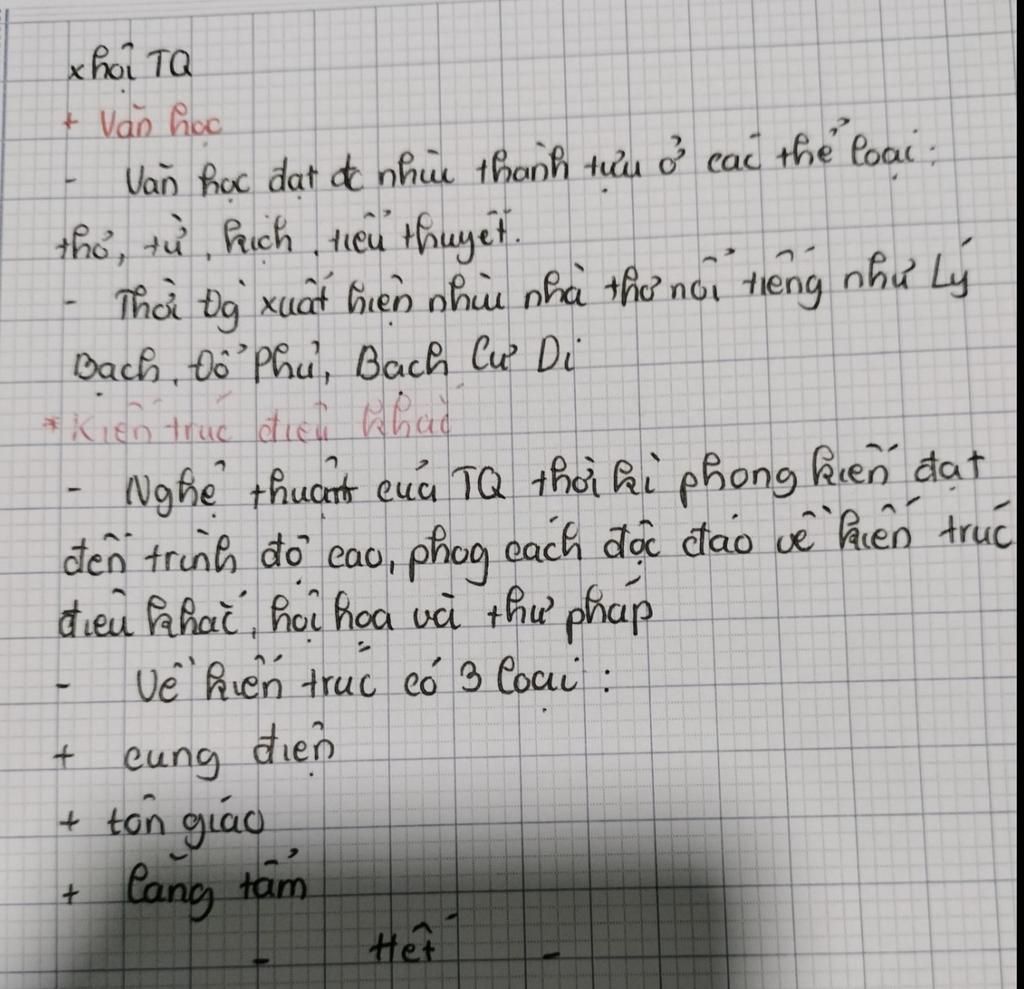 xhội TQ
+ Văn học
- Văn học đạt đc nhìu thành tựu ở các thể loại:
thơ, từ, kịch, tiểu thuyết.
- Thời Đg xuất hiện nhìu nhà thơ nổi tiếng như Lý
Bạch, Đỗ Phủ, Bạch Cư Dị
*Kiến trúc điêu khắc
- Nghệ thuật của TQ thời kì phong kiến đạt
đến trình độ cao, phog cách độc đáo về kiến trúc
điêu khắc, hội họa và thư pháp
- Về kiến trúc có 3 loại:
+ cung điện
+ tôn giáo
+ lăng tẩm
- Hết -